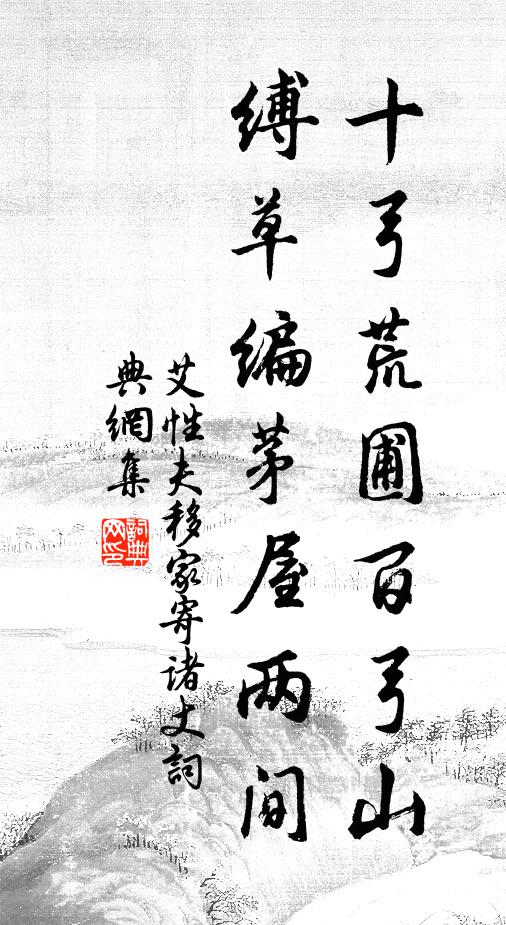 十弓荒圃百弓山
缚草编茅屋两间
艾性夫移家寄诸丈詞
典網集
詞典
网印